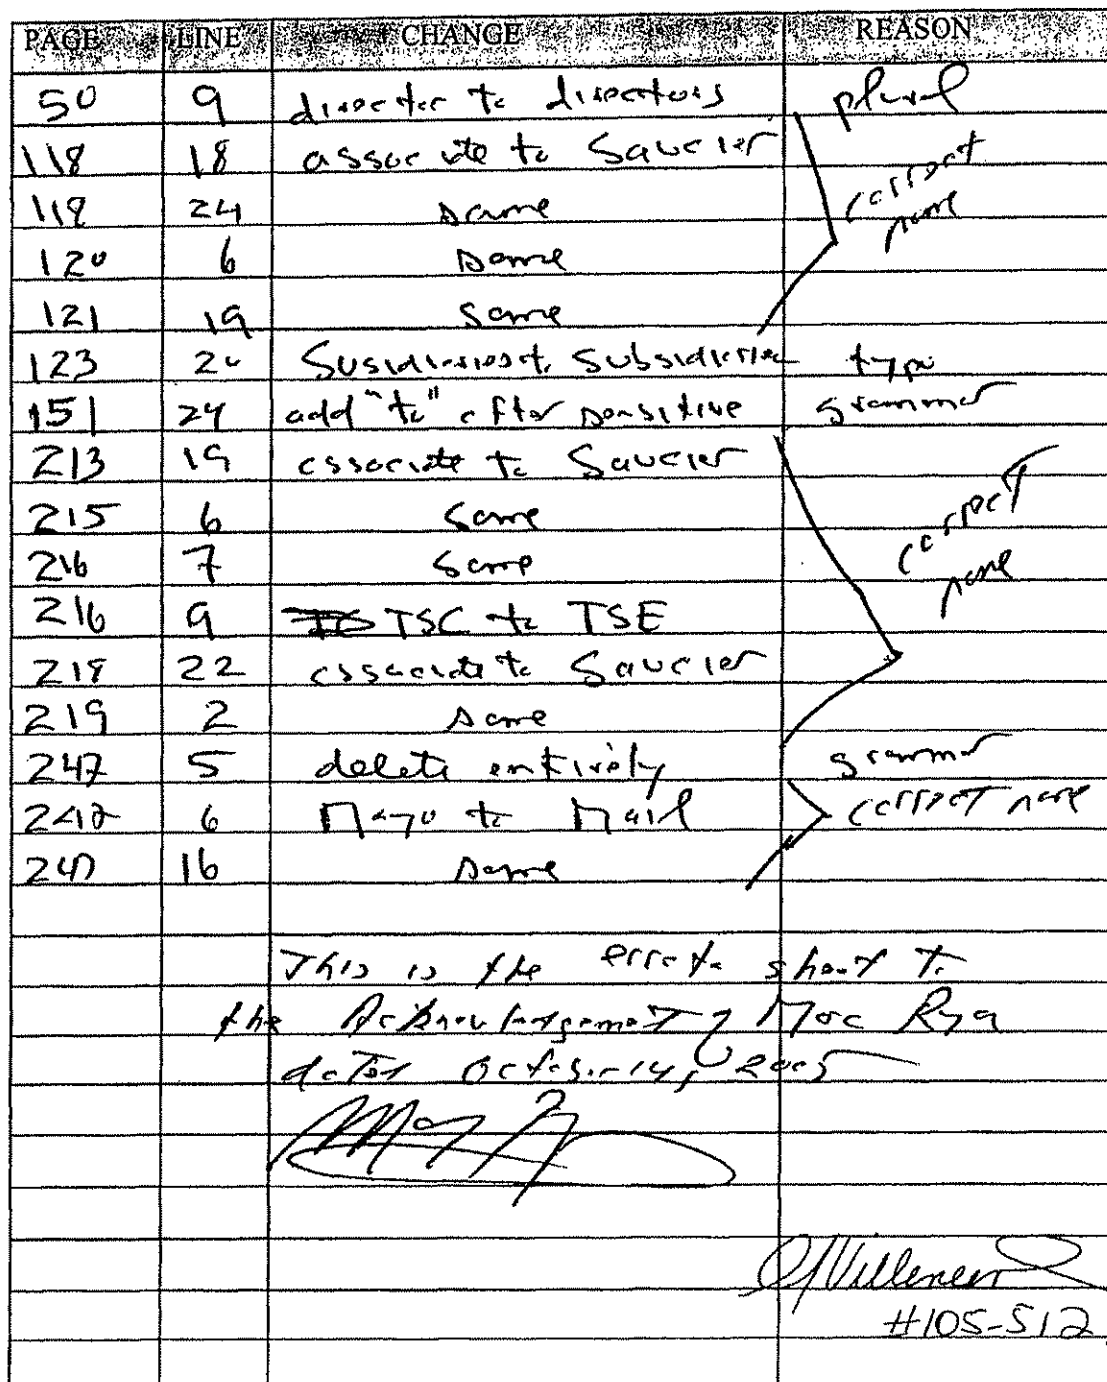 PAGE LINE CHANGE REASON
50 9 director to directors plural
118 18 associate to Saucier correct name
118 24 same
120 6 same
121 19 same
123 20 Susidiaries to Subsidiaries typo
151 24 add "to" after sensitive grammar
213 19 associate to Saucier correct name
215 6 same
216 7 same
216 9 TSC to TSE
218 22 associate to Saucier
219 2 same
247 5 delete entirely grammar
247 6 Mayo to correct name
247 16 same
This is the errata sheet to
the Acknowledgement of
dated October 14, 2005
#105-512